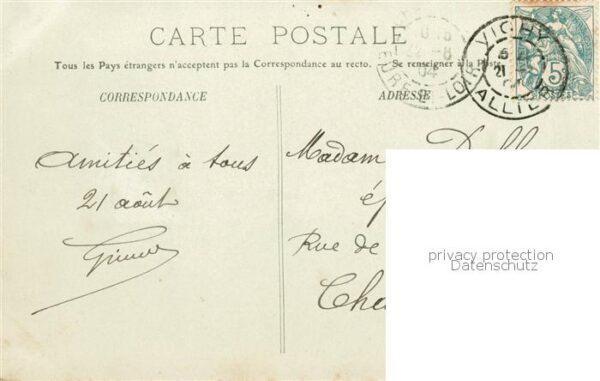 CARTE POSTALE
Tous les Pays étrangers n'acceptent pas la Correspondance au recto. — Se renseigner à la Poste
CORRESPONDANCE
ADRESSE
VICHY
ALLIER
21
5
04
EURE
LOIR
Amitiés à tous
21 août
Madam
Rue de
privacy protection
Datenschutz